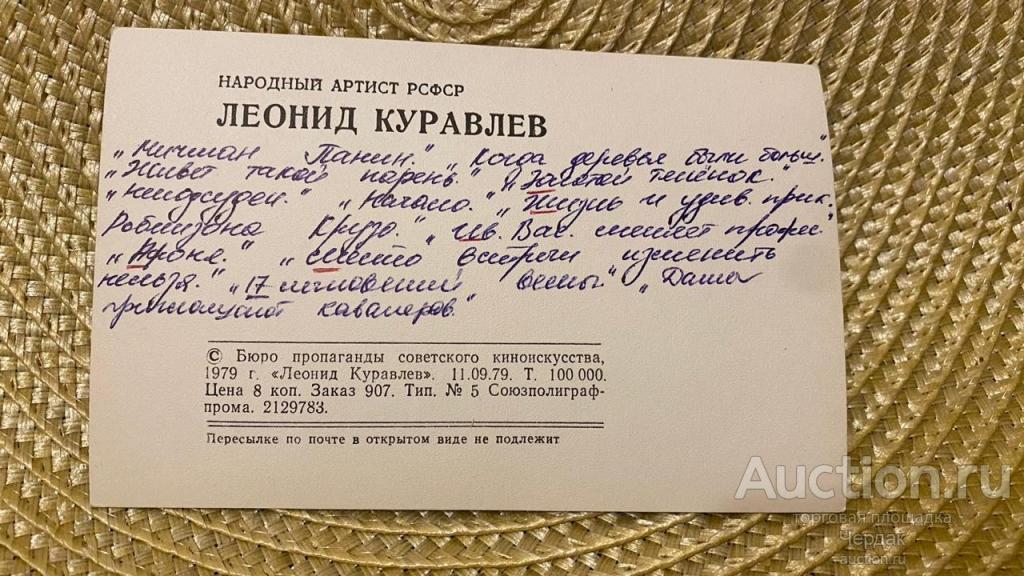 НАРОДНЫЙ АРТИСТ РСФСР
ЛЕОНИД КУРАВЛЕВ
„Мичман Панин.” „Когда деревья были больш.”
„Живет такой парень.” „Золотой телёнок.”
„Неподсуден.” „Начало.” „Жизнь и удив. прик.
Робинзона Крузо. „Ив. Вас. меняет профес.
„Афоня.” „Место встречи изменить
нельзя.” „17 мгновений весны.” „Дамы
приглашают кавалеров.”
© Бюро пропаганды советского киноискусства,
1979 г. «Леонид Куравлев». 11.09.79. Т. 100 000.
Цена 8 коп. Заказ 907. Тип. № 5 Союзполиграф-
прома. 2129783.
Пересылке по почте в открытом виде не подлежит
Auction.ru
торговая площадка
Чердак
auction.ru